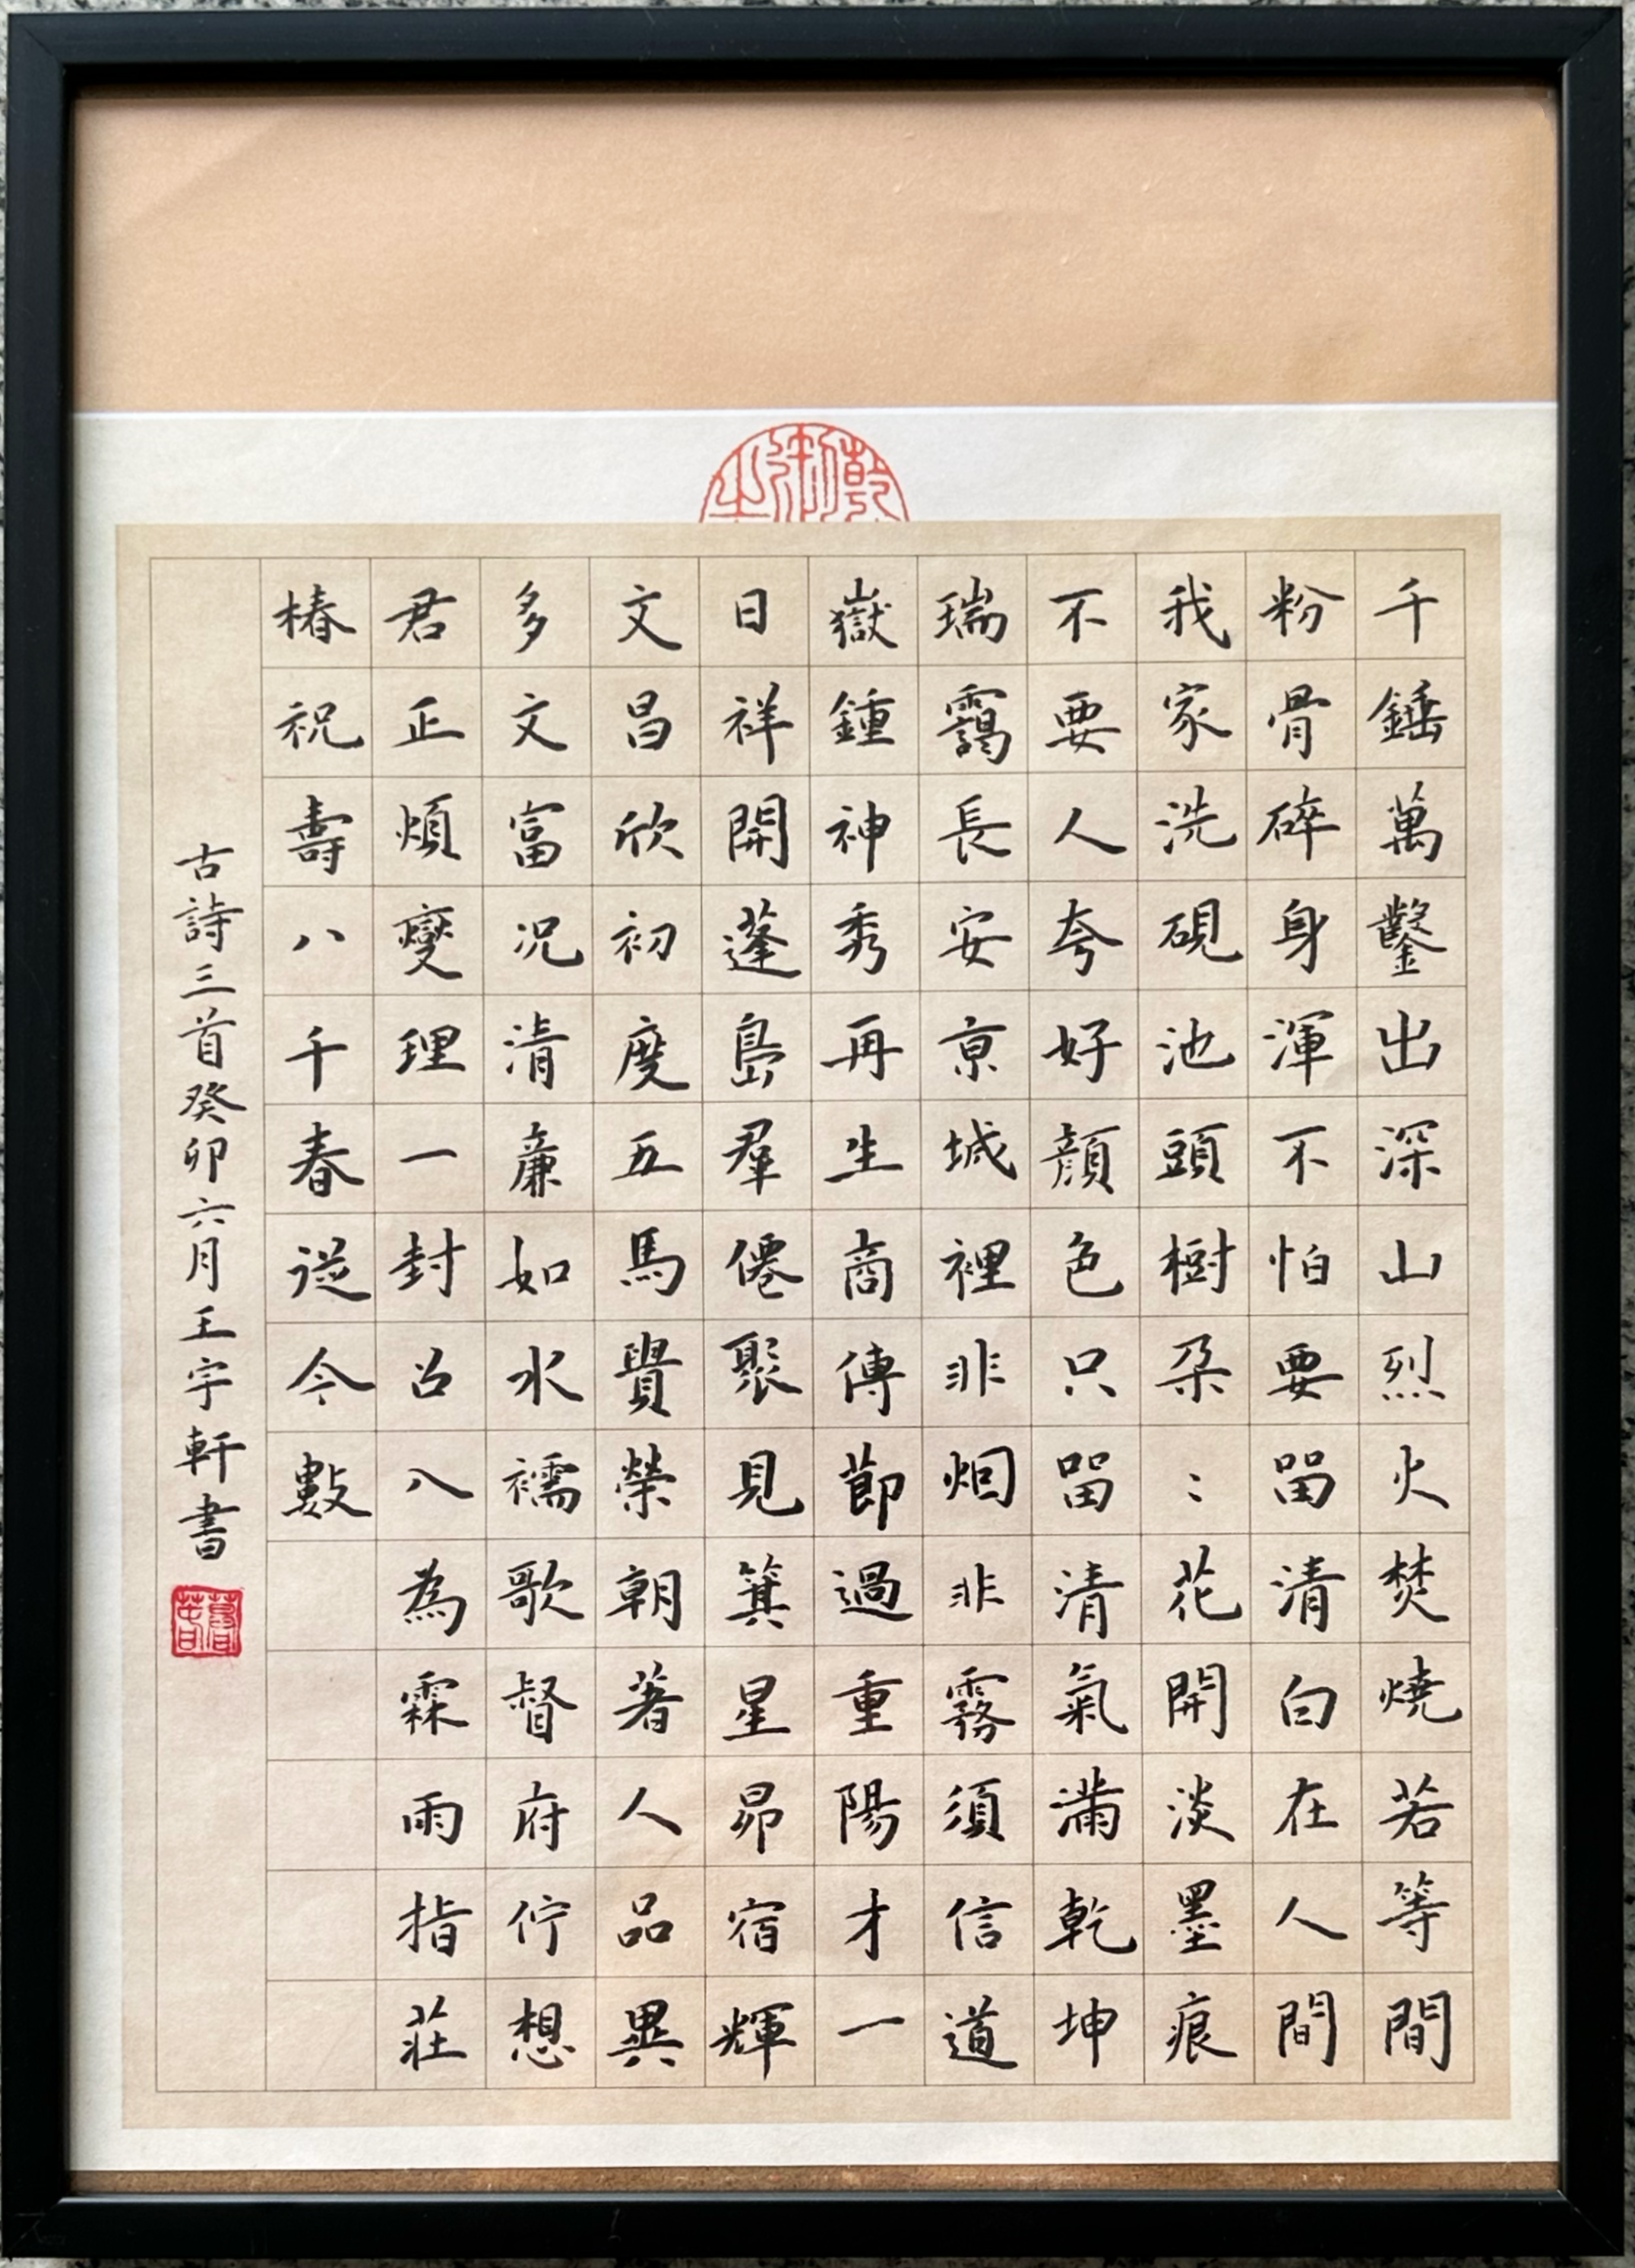 千錘萬鑿出深山烈火焚燒若等閒
粉骨碎身渾不怕要留清白在人間
我家洗硯池頭樹朵〻花開淡墨痕
不要人夸好顏色只留清氣滿乾坤
瑞靄長安亰城裡非烟非霧須信道
嶽鍾神秀再生商傳節過重陽才一
日祥開蓬島羣僊聚見箕星昴宿輝
文昌欣初度五馬貴榮朝著人品異
多文富況清廉如水襦歌督府佇想
君正煩變理一封召入為霖雨指莊
椿祝壽八千春從今數
古詩三首癸卯六月王宇軒書